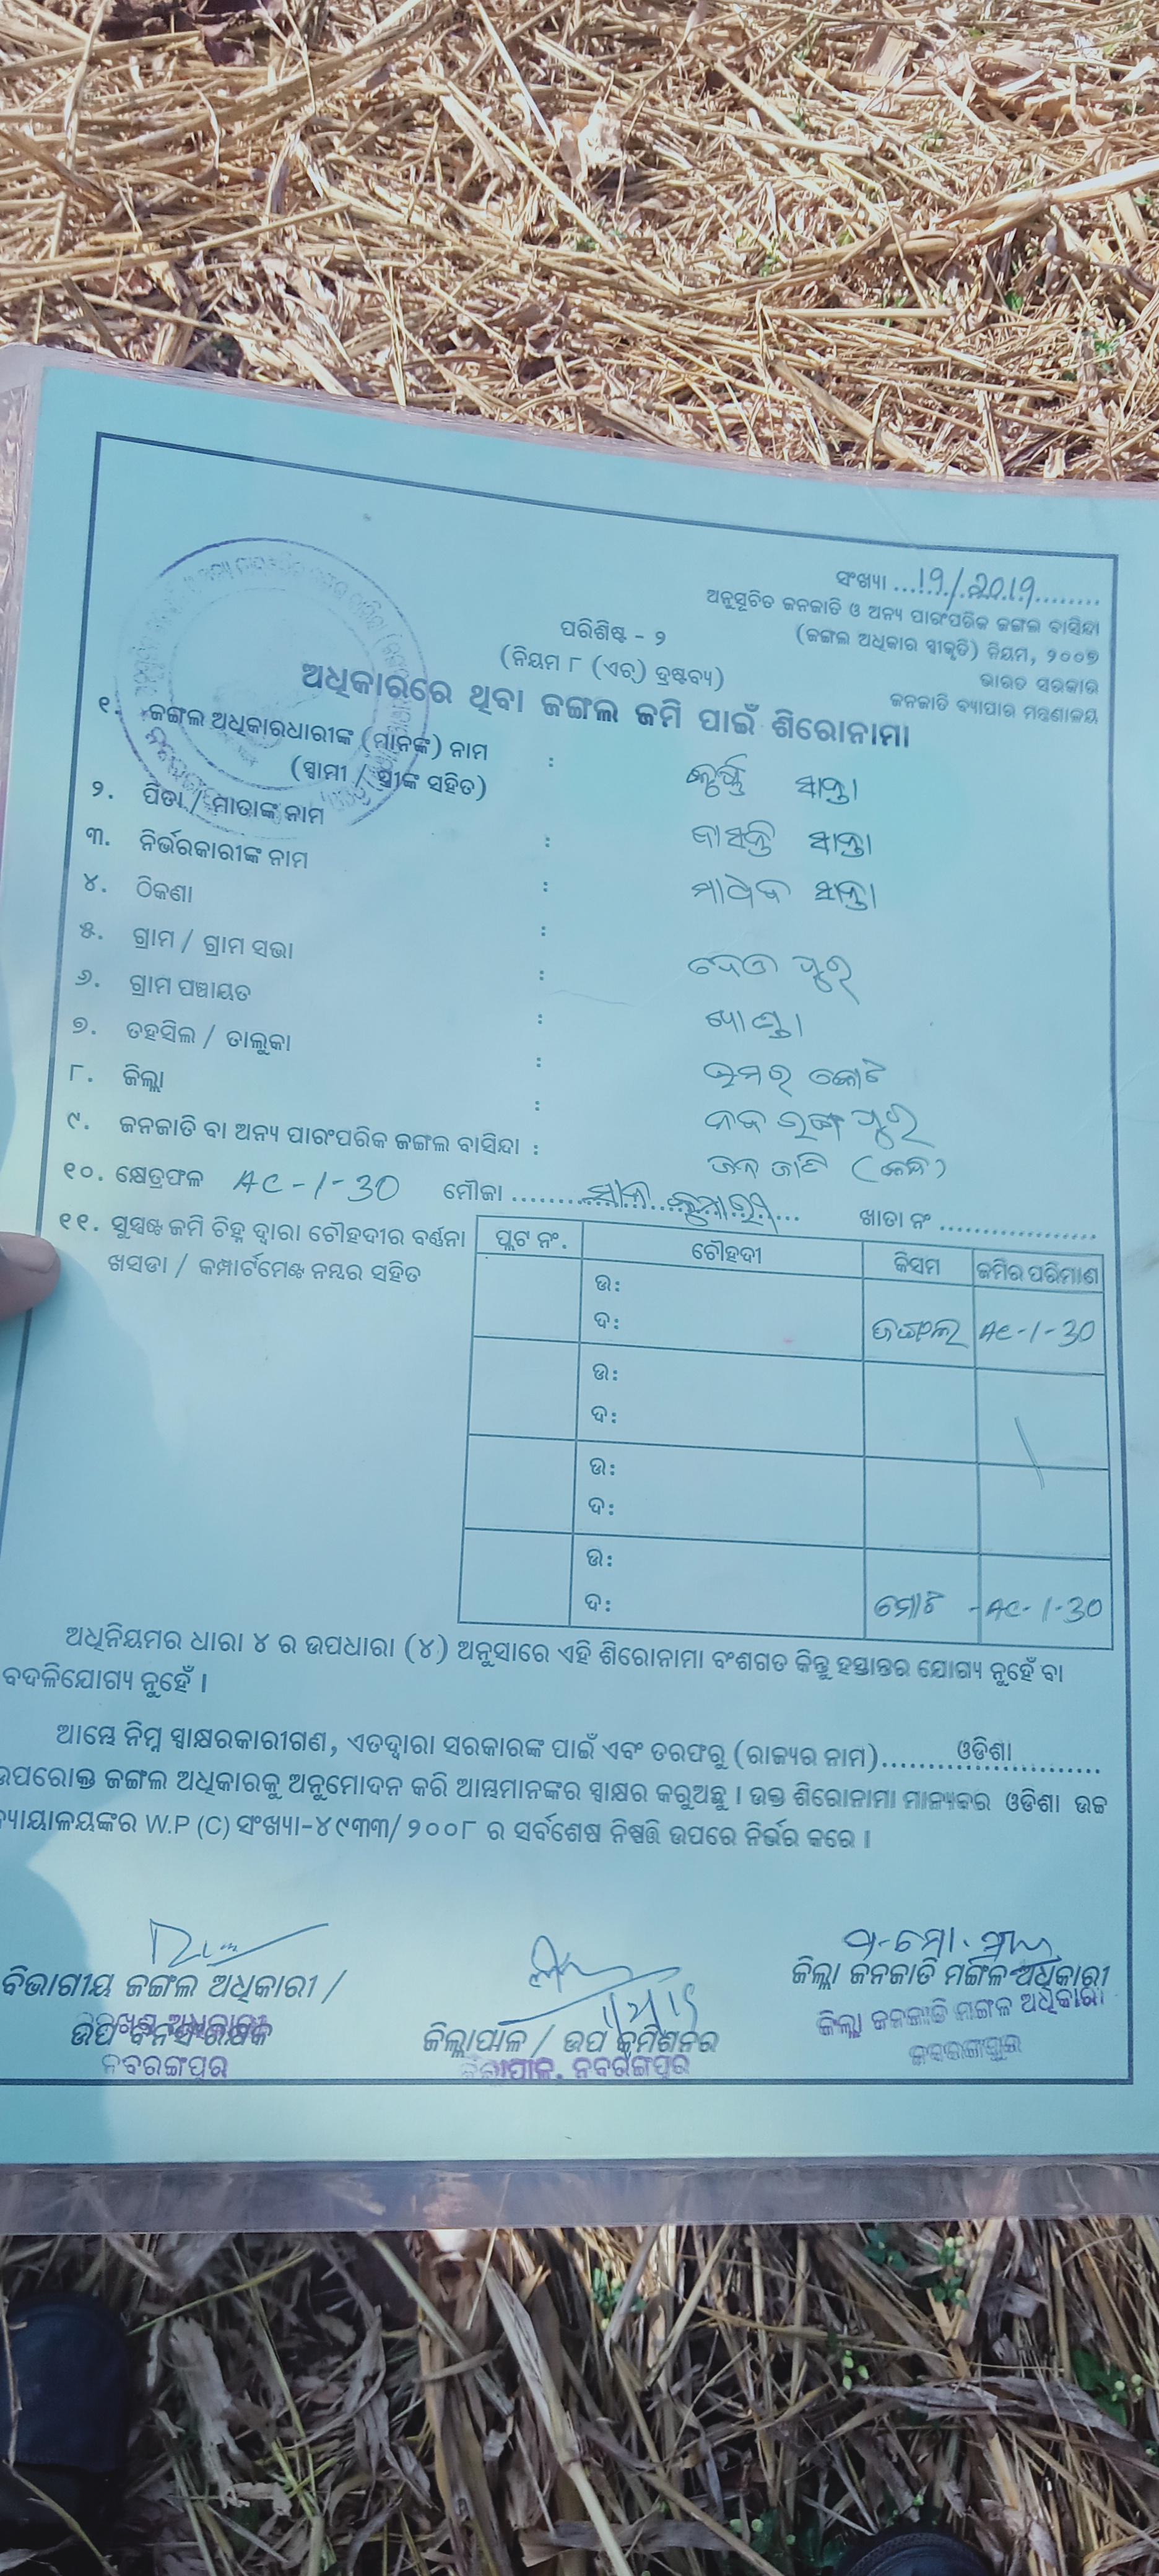 ସଂଖ୍ୟା ...19/2019...
ଅନୁସୂଚିତ ଜନଜାତି ଓ ଅନ୍ୟ ପାରଂପରିକ ଜଙ୍ଗଲ ବାସିନ୍ଦା
(ଜଙ୍ଗଲ ଅଧିକାର ସ୍ୱୀକୃତି) ନିୟମ, ୨୦୦୭
ଭାରତ ସରକାର
ଜନଜାତି ବ୍ୟାପାର ମନ୍ତ୍ରଣାଳୟ
ପରିଶିଷ୍ଟ - ୨
(ନିୟମ ୮ (ଏଚ୍) ଦ୍ରଷ୍ଟବ୍ୟ)
ଅଧିକାରରେ ଥିବା ଜଙ୍ଗଲ ଜମି ପାଇଁ ଶିରୋନାମା
୧. ଜଙ୍ଗଲ ଅଧିକାରଧାରୀଙ୍କ (ମାନଙ୍କ) ନାମ :
(ସ୍ୱାମୀ / ସ୍ତ୍ରୀଙ୍କ ସହିତ) ସାନ୍ତା
୨. ପିତା / ମାତାଙ୍କ ନାମ : ସାନ୍ତା
୩. ନିର୍ଭରକାରୀଙ୍କ ନାମ : ସାନ୍ତା
୪. ଠିକଣା :
୫. ଗ୍ରାମ / ଗ୍ରାମ ସଭା : ପୁର
୬. ଗ୍ରାମ ପଞ୍ଚାୟତ :
୭. ତହସିଲ / ତାଲୁକା : ଉମରକୋଟ
୮. ଜିଲ୍ଲା : ନବରଙ୍ଗପୁର
୯. ଜନଜାତି ବା ଅନ୍ୟ ପାରଂପରିକ ଜଙ୍ଗଲ ବାସିନ୍ଦା : ଜନଜାତି
୧୦. କ୍ଷେତ୍ରଫଳ AC-1-30 ମୌଜା ............ ଖାତା ନଂ ............
୧୧. ସୁସ୍ପଷ୍ଟ ଜମି ଚିହ୍ନ ଦ୍ୱାରା ଚୌହଦୀର ବର୍ଣ୍ଣନା
ଖସଡା / କମ୍ପାର୍ଟମେଣ୍ଟ ନମ୍ବର ସହିତ
ପ୍ଲଟ ନଂ. ଚୌହଦୀ କିସମ ଜମିର ପରିମାଣ
ଉ:
ଦ: ଜଙ୍ଗଲ AC-1-30
ଉ:
ଦ:
ଉ:
ଦ:
ଉ:
ଦ: ମୋଟ -AC-1-30
ଅଧିନିୟମର ଧାରା ୪ ର ଉପଧାରା (୪) ଅନୁସାରେ ଏହି ଶିରୋନାମା ବଂଶଗତ କିନ୍ତୁ ହସ୍ତାନ୍ତର ଯୋଗ୍ୟ ନୁହେଁ ବା
ବଦଳିଯୋଗ୍ୟ ନୁହେଁ ।
ଆମ୍ଭେ ନିମ୍ନ ସ୍ୱାକ୍ଷରକାରୀଗଣ, ଏତଦ୍ଦ୍ୱାରା ସରକାରଙ୍କ ପାଇଁ ଏବଂ ତରଫରୁ (ରାଜ୍ୟର ନାମ)........ଓଡିଶା........
ଉପରୋକ୍ତ ଜଙ୍ଗଲ ଅଧିକାରକୁ ଅନୁମୋଦନ କରି ଆମ୍ଭମାନଙ୍କର ସ୍ୱାକ୍ଷର କରୁଅଛୁ । ଉକ୍ତ ଶିରୋନାମା ମାନ୍ୟବର ଓଡିଶା ଉଚ୍ଚ
ନ୍ୟାୟାଳୟଙ୍କର W.P (C) ସଂଖ୍ୟା-୪୯୩୩/ ୨୦୦୮ ର ସର୍ବଶେଷ ନିଷ୍ପତ୍ତି ଉପରେ ନିର୍ଭର କରେ ।
ବିଭାଗୀୟ ଜଙ୍ଗଲ ଅଧିକାରୀ /
ଉପ ବନସଂରକ୍ଷକ
ନବରଙ୍ଗପୁର
ଜିଲ୍ଲାପାଳ / ଉପ କମିଶନର
ଜିଲ୍ଲାପାଳ, ନବରଙ୍ଗପୁର
ଜିଲ୍ଲା ଜନଜାତି ମଙ୍ଗଳ ଅଧିକାରୀ
ଜିଲ୍ଲା ଜନଜାତି ମଙ୍ଗଳ ଅଧିକାରୀ
ନବରଙ୍ଗପୁର